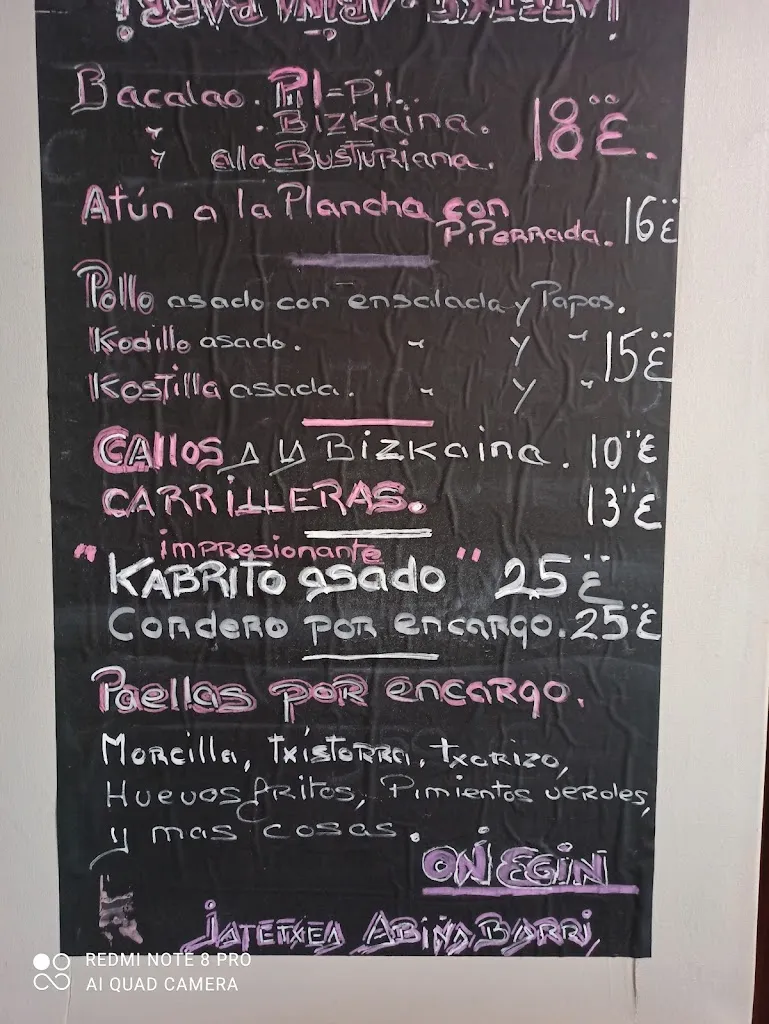 Bacalao. Pil=Pil..
" . Bizkaina.
" alla=Busturiana. 18"€.
Atún a la Plancha con
Piperrada. 16"€
Pollo asado con ensalada y Papas.
Kodillo asado. " y " 15"€
Kostilla asada. " y "
CAllos A y Bizkaina. 10"€
CARRILLERAS. 13"€
impresionante
"KABRITO asado" 25"€
Cordero por encargo. 25"€
Paellas por encargo.
Morcilla, txistorra, txorizo,
Huevos fritos, Pimientos verdes,
y mas cosas.
ON EGIN
JATETXEA ABIÑA BARRI
REDMI NOTE 8 PRO
AI QUAD CAMERA